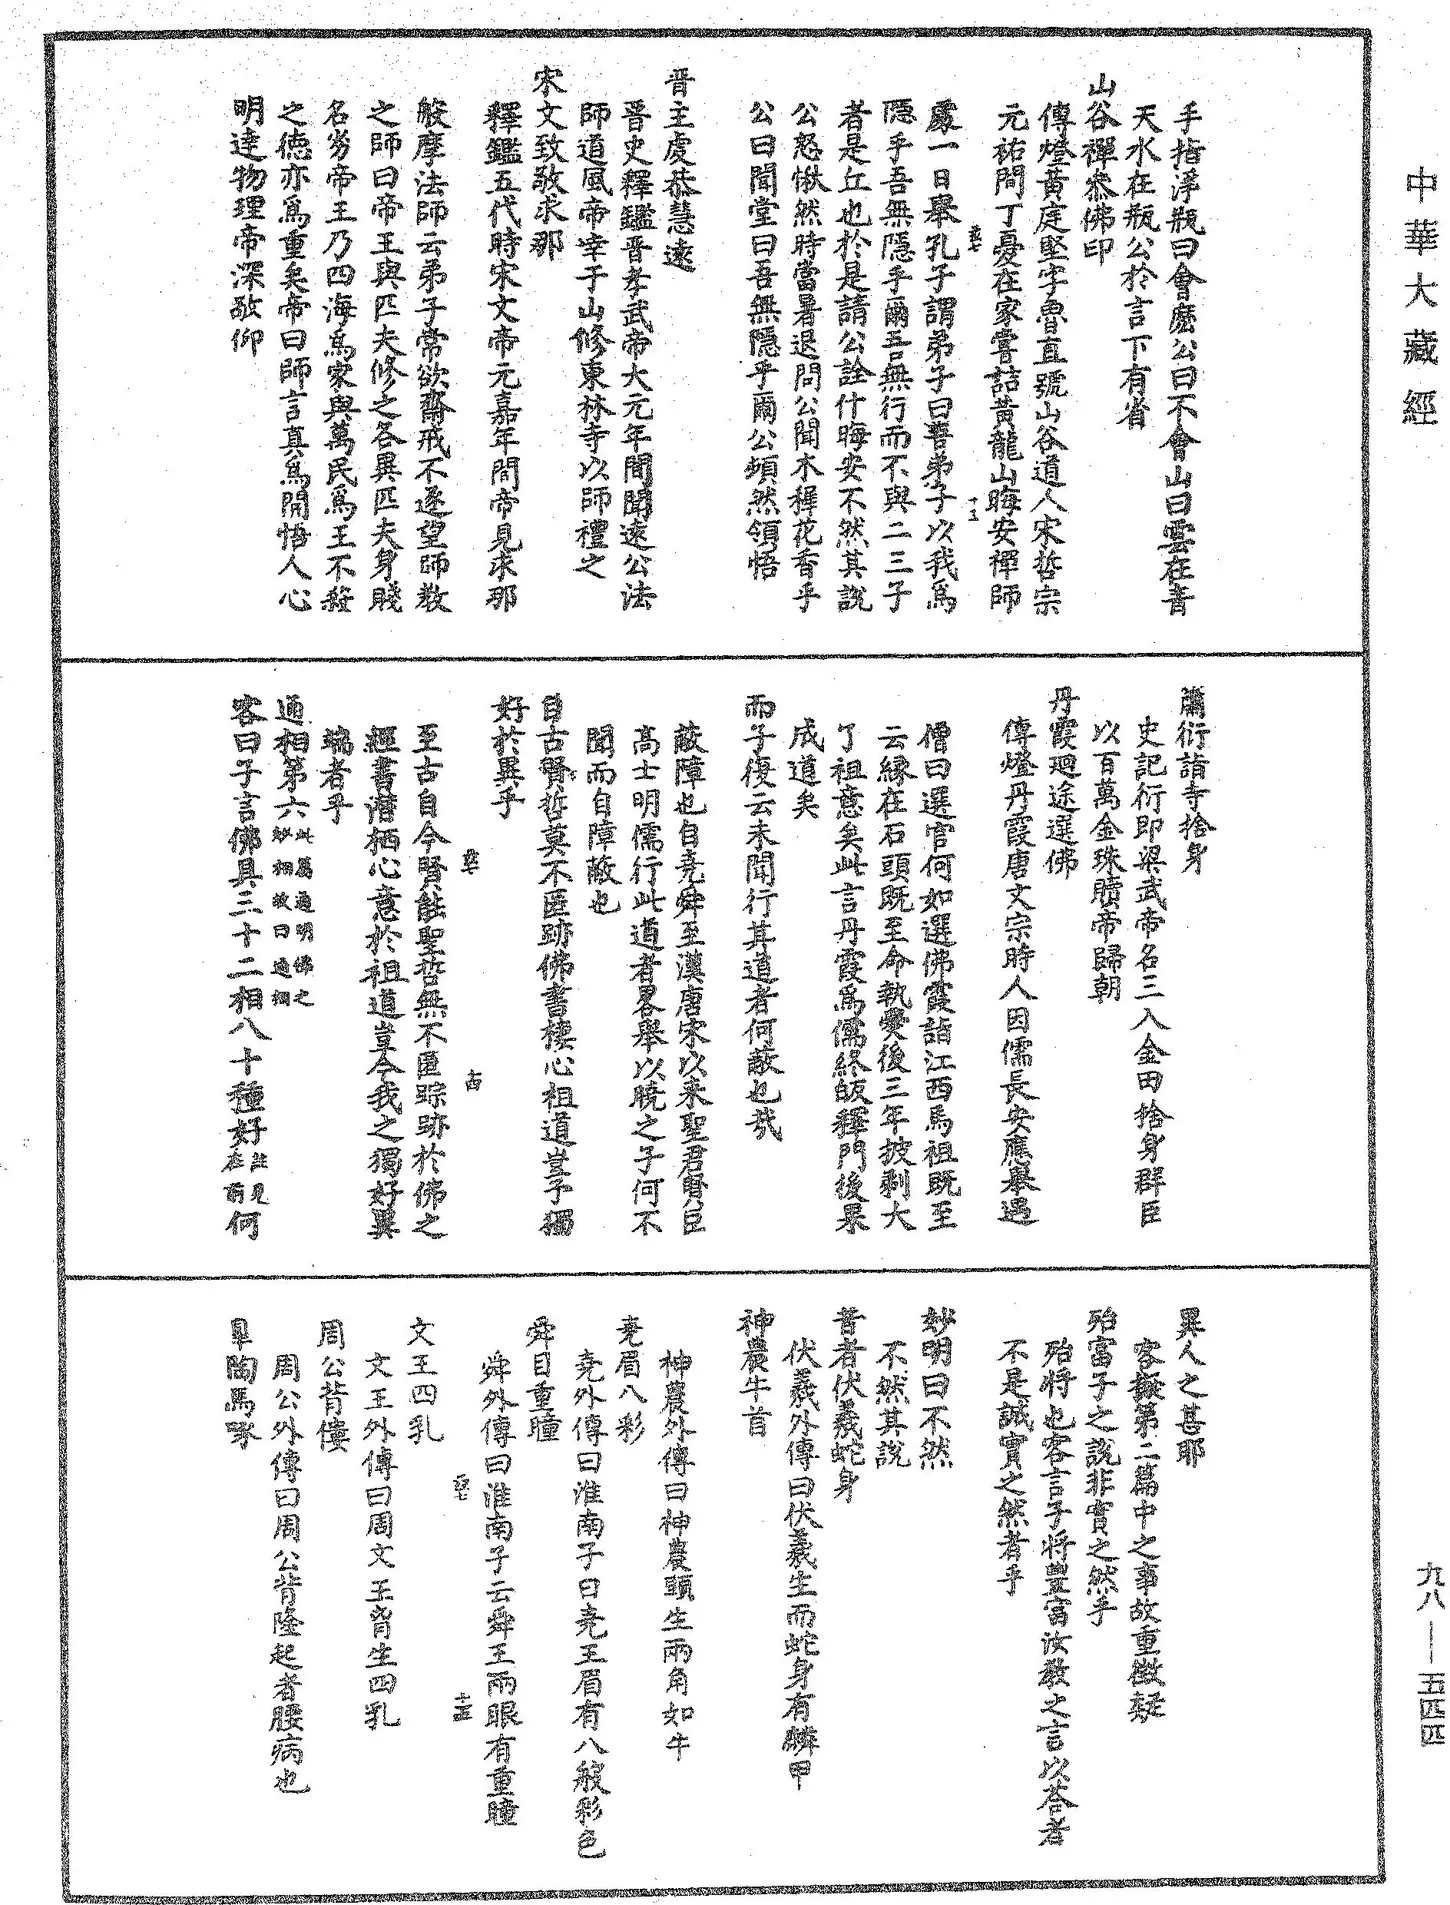 中華大藏經
手指淨瓶曰會麽公曰不會山曰雲在青
天水在瓶公於言下有省
山谷禪叅佛印
傳燈黃庭堅字魯直號山谷道人宋哲宗
元祐間丁憂在家嘗詰黃龍山晦安禪師
處一日舉孔子謂弟子曰吾弟子以我爲
隱乎吾無隱乎爾吾無行而不與二三子
者是丘也於是請公詮什晦安不然其說
公怒愀然時當暑退問公聞木穉花香乎
公曰聞堂曰吾無隱乎爾公頓然領悟
晉主虔恭慧遠
晉史釋鑑晉孝武帝大元年間聞遠公法
師道風帝宰于山修東林寺以師禮之
宋文致敬求那
釋鑑五代時宋文帝元嘉年問帝見求那
般摩法師云弟子常欲齋戒不遂望師教
之師曰帝王與匹夫修之各異匹夫身賤
名劣帝王乃四海爲家與萬民爲王不殺
之德亦爲重矣帝曰師言真爲開悟人心
明達物理帝深敬仰
蕭衍詣寺捨身
史記衍即梁武帝名三入金田捨身群臣
以百萬金珠贖帝歸朝
丹霞廻途選佛
傳燈丹霞唐文宗時人因儒長安應舉遇
僧曰選官何如選佛霞詣江西馬祖既至
云緣在石頭既至命執爨後三年披剃大
了祖意矣此言丹霞爲儒終皈釋門後果
成道矣
而子復云未聞行其道者何蔽也哉
蔽障也自堯舜至漢唐宋以來聖君賢臣
高士明儒行此道者畧舉以曉之子何不
聞而自障蔽也
自古賢哲莫不匿跡佛書棲心祖道豈予獨
好於異乎
至古自今賢能聖哲無不匿踪跡於佛之
經書潛栖心意於祖道豈今我之獨好異
端者乎
通相第六此篇通明佛之妙相故曰通相
客曰子言佛具三十二相八十種好註見在前何
異人之甚耶
客擬第二篇中之事故重徵疑
殆富子之說非實之然乎
殆將也客言子將豐富汝教之言以荅者
不是誠實之然者乎
妙明曰不然
不然其說
昔者伏羲蛇身
伏羲外傳曰伏羲生而蛇身有鱗甲
神農牛首
神農外傳曰神農頭生兩角如牛
堯眉八彩
堯外傳曰淮南子曰堯王眉有八般彩色
舜目重瞳
舜外傳曰淮南子云舜王兩眼有重瞳
文王四乳
文王外傳曰周文王胷生四乳
周公背僂
周公外傳曰周公背隆起者腰病也
臯陶馬啄
九八—五四四